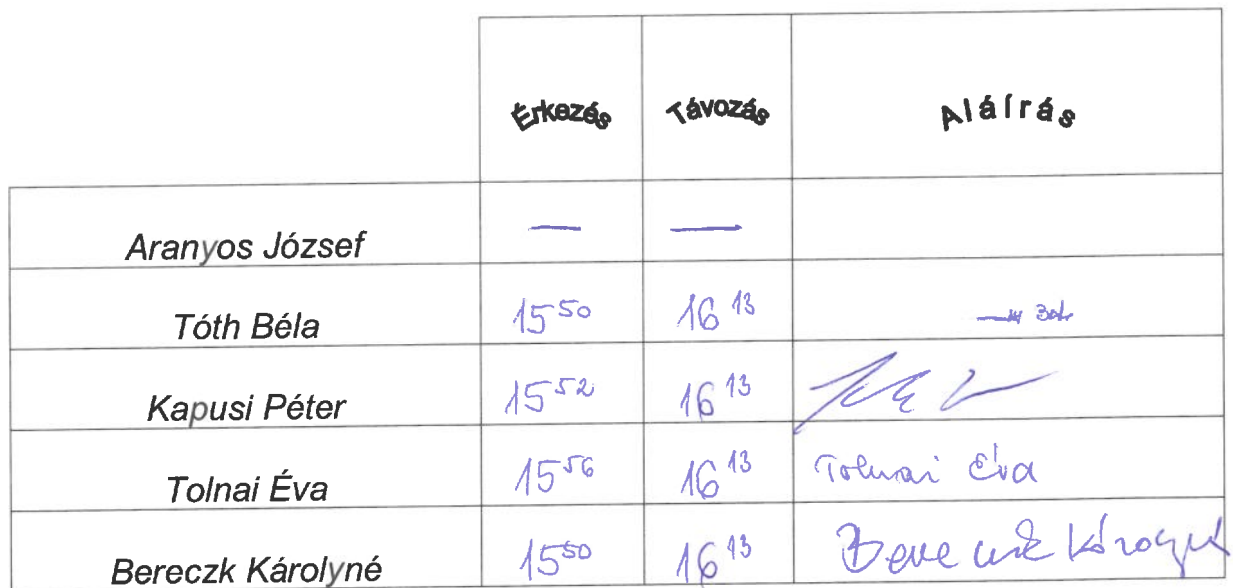 Érkezés Távozás Aláírás
Aranyos József — —
Tóth Béla 15⁵⁰ 16¹³
Kapusi Péter 15⁵² 16¹³
Tolnai Éva 15⁵⁶ 16¹³ Tolnai Éva
Bereczk Károlyné 15⁵⁰ 16¹³ Bereczk Károlyné